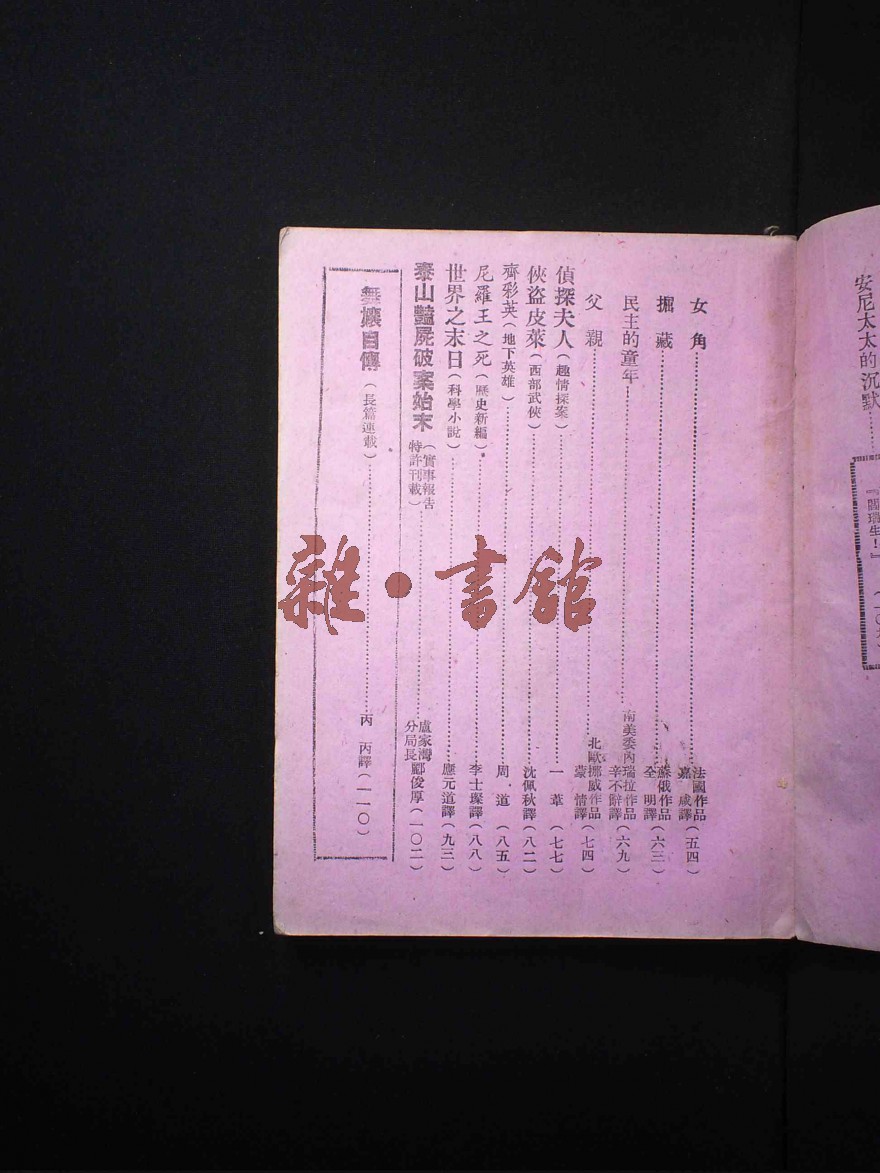 安尼太太的沉默……
『閻瑞生!』
(一〇九)
女角……法國作品 嘉咸譯(五四)
掘藏……蘇俄作品 全明譯(六三)
民主的童年……南美委內瑞拉作品 辛不辭譯(六九)
父親……北歐挪威作品 蒙情譯(七四)
偵探夫人(趣情探案)……一葦(七七)
俠盜皮萊(西部武俠)……沈佩秋譯(八二)
齊彩英(地下英雄)……周道(八五)
尼羅王之死(歷史新編)……李士璨譯(八八)
世界之末日(科學小說)……應元道譯(九三)
泰山豔屍破案始末(實事報告 特許刊載)……盧家灣分局長 酈俊厚(一〇二)
舞孃自傳(長篇連載)……丙丙譯(一一〇)
雜·書館